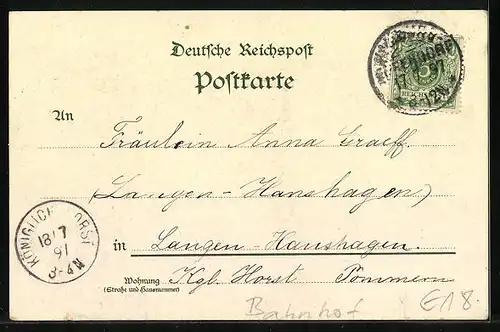 Deutsche Reichspost
Postkarte
An
Fräulein Anna Graeff.
(Langen-Hanshagen)
in Langen-Hanshagen.
Wohnung
(Straße und Hausnummer)
Kgl. Horst Pommern
Bahnhof
E18.
17 7 97
8-12N
REICHS
5
18/7
97
8-4N